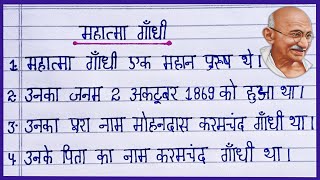 महात्मा गाँधी
1. महात्मा गाँधी एक महान पुरुष थे।
2. उनका जनम 2 अकटूबर 1869 को हुआ था।
3. उनका पूरा नाम मोहनदास करमचंद गाँधी था।
4. उनके पिता का नाम करमचंद गाँधी था।